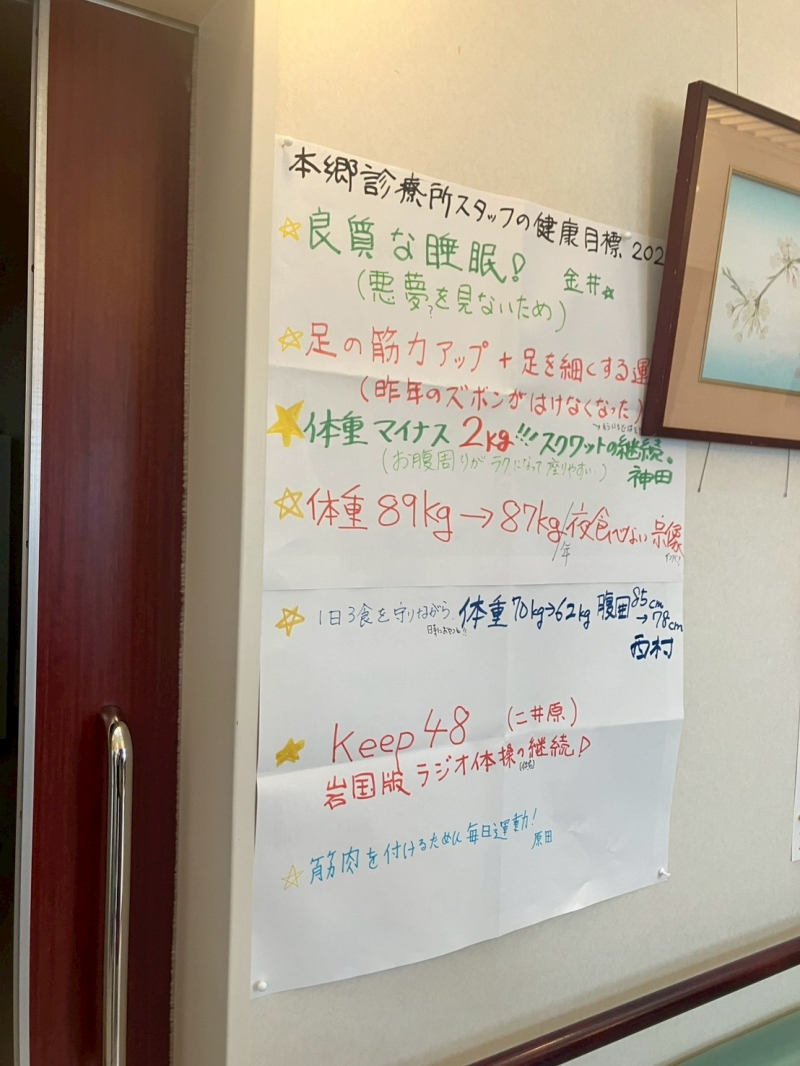 本郷診療所スタッフの健康目標 202
良質な睡眠! 金井
(悪夢?を見ないため)
足の筋力アップ + 足を細くする運
(昨年のズボンがはけなくなった)
体重マイナス2kg!!! スクワットの継続。
(お腹周りがラクになって座りやすい) 神田
体重89kg→87kg/年 夜食べない 宗像
1日3食を守りながら 体重70kg→62kg 腹囲85cm→78cm
西村
Keep 48 (二井原)
岩国版ラジオ体操の継続!
筋肉を付けるために毎日運動! 原田